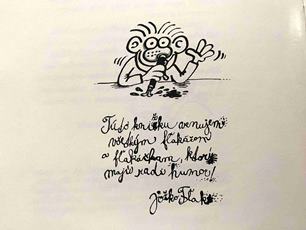 Túto knižku venujem
všetkým fľakárom
a fľakárkam, ktorí
majú radi humor!
Jožko Fľak